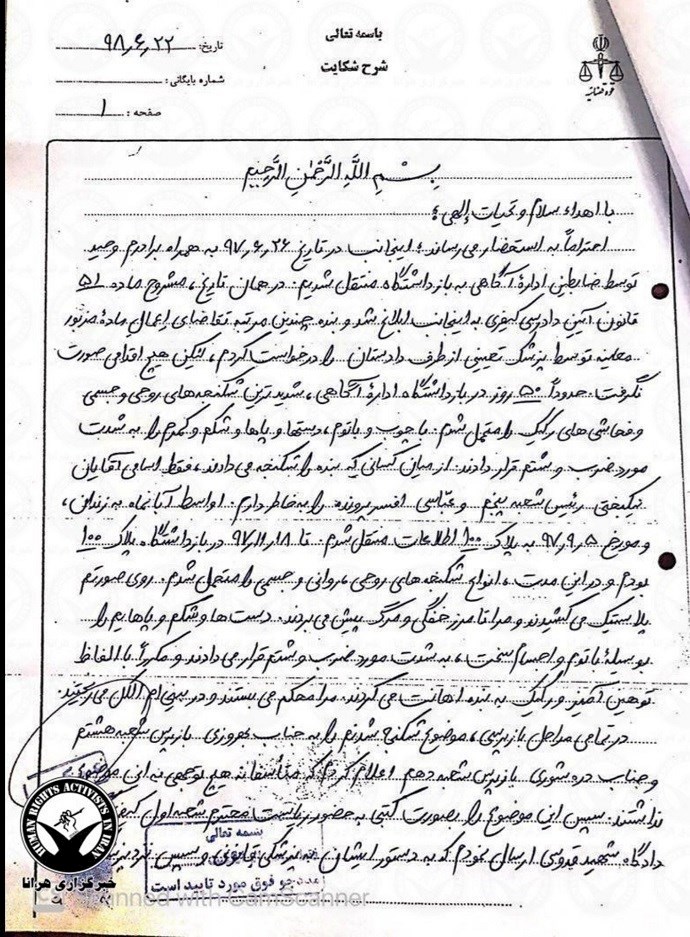 باسمه تعالی
شرح شکایت
تاریخ: ۹۸٫۶٫۲۲
شماره بایگانی:
صفحه: ۱
قوه قضائیه
بسم الله الرحمن الرحیم
با اهداء سلام و تحیات إلهی؛
احتراماً به استحضار می‌رساند؛ اینجانب در تاریخ ۹۷٫۶٫۲۶ به همراه برادرم وحید
توسط ضابطین ادارهٔ آگاهی به بازداشتگاه منتقل شدیم. در همان تاریخ، مشروح ماده ۵۱
قانون آیین دادرسی کیفری به اینجانب ابلاغ شد و بنده چندین مرتبه تقاضای إعمال مادهٔ مزبور
معاینه توسط پزشک تعیینی از طرف دادستان را درخواست کردم، لیکن هیچ اقدامی صورت
نگرفت. حدوداً ۵۰ روز در بازداشتگاه ادارهٔ آگاهی، شدیدترین شکنجه‌های روحی و جسمی
و فحاشی‌های رکیک را متحمل شدم. با چوب و باتوم، دستها و پاها و شکم و کمرم را به شدت
مورد ضرب و شتم قرار دادند. از میان کسانی که بنده را شکنجه می‌دادند، فقط اسامی آقایان
نیکبختی رئیس شعبه پنجم و عباسی افسر پرونده را به خاطر دارم. اواسط آبانماه به زندان،
و مورخ ۹۷٫۹٫۵ به پلاک ۱۰۰ اطلاعات منتقل شدم. تا ۹۷٫۱۱٫۱۸ در بازداشتگاه پلاک ۱۰۰
بودم و در این مدت، انواع شکنجه‌های روحی، روانی و جسمی را متحمل شدم. روی صورتم
پلاستیک می‌کشیدند و مرا تا مرز خفگی و مرگ پیش می‌بردند. دست‌ها و شکم و پاهایم را
بوسیلهٔ باتوم و اجسام سخت، به شدت مورد ضرب و شتم قرار می‌دادند و مکرراً با الفاظ
توهین آمیز و رکیک به بنده اهانت می‌کردند. مرا محکم می‌بستند و در بینی‌ام الکل می‌ریختند.
در تمامی مراحل بازپرسی، موضوع شکنجه شدنم را به جناب بازپرس شعبه هشتم
و جناب بازپرس شعبه دهم اعلام کردم که متأسفانه هیچ توجهی به این موضوع
نداشتند. سپس این موضوع را بصورت کتبی به حضور ریاست محترم شعبه اول
دادگاه شهید قدوسی ارسال نمودم که به دستور ایشان به پزشکی قانونی و سپس
بسمه تعالی
مددجو فوق مورد تایید است
HUMAN RIGHTS ACTIVISTS IN IRAN
خبرگزاری هرانا
Scanned with CamScanner